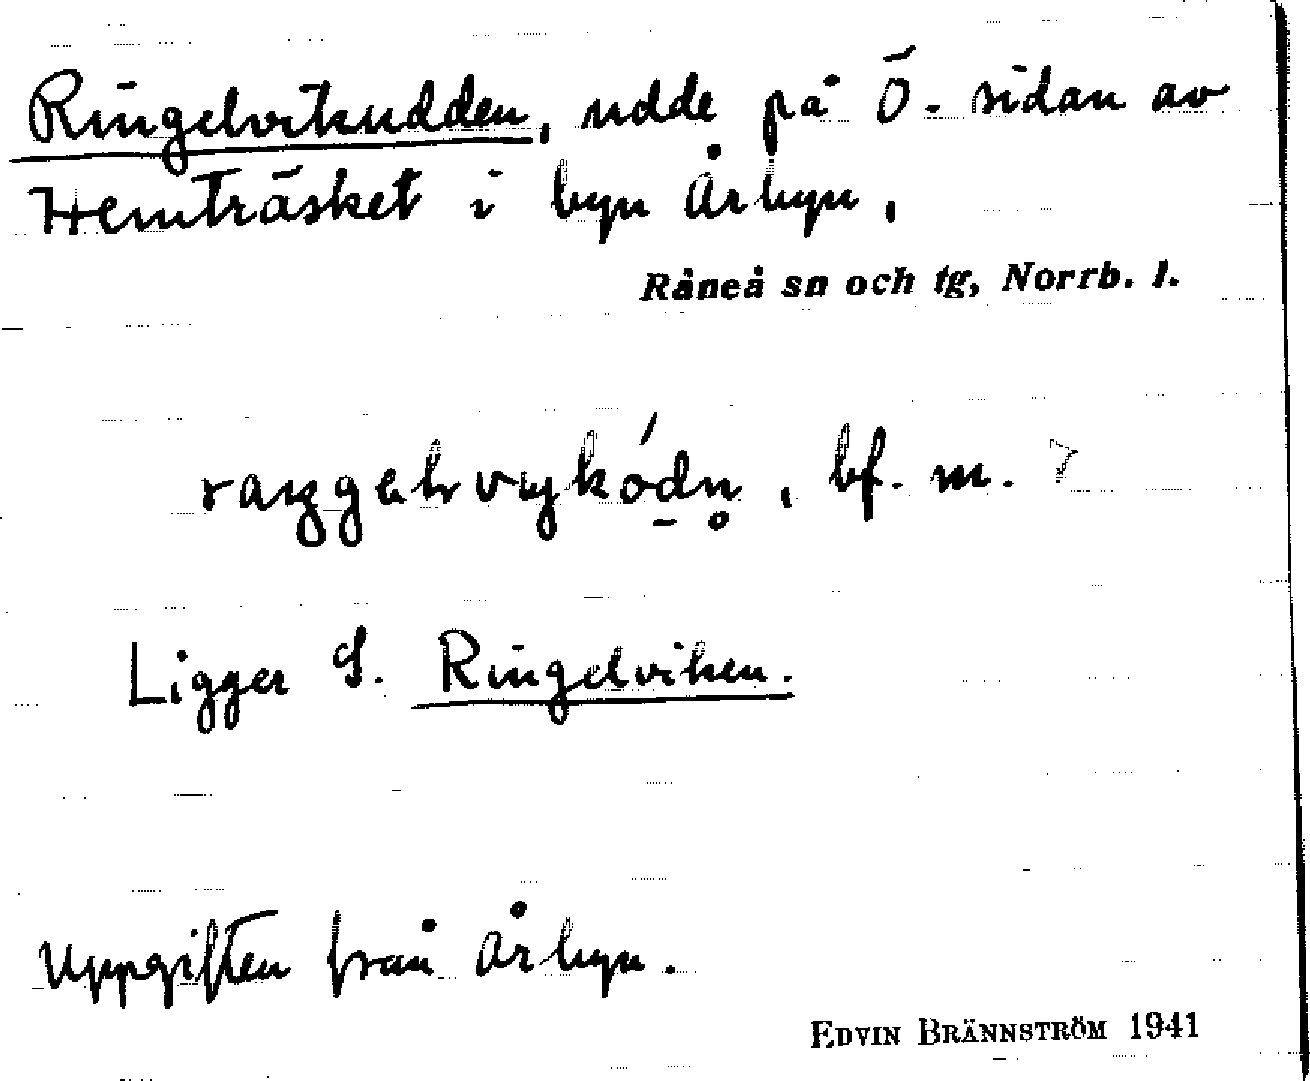 Ringelvikudden, udde på Ö. sidan av
Hemträsket i byn Årbyn,
Råneå sn och tg, Norrb. l.
bf. m. ?
Ligger S. Ringelviken.
Uppgiften från Årbyn.
EDVIN BRÄNNSTRÖM 1941